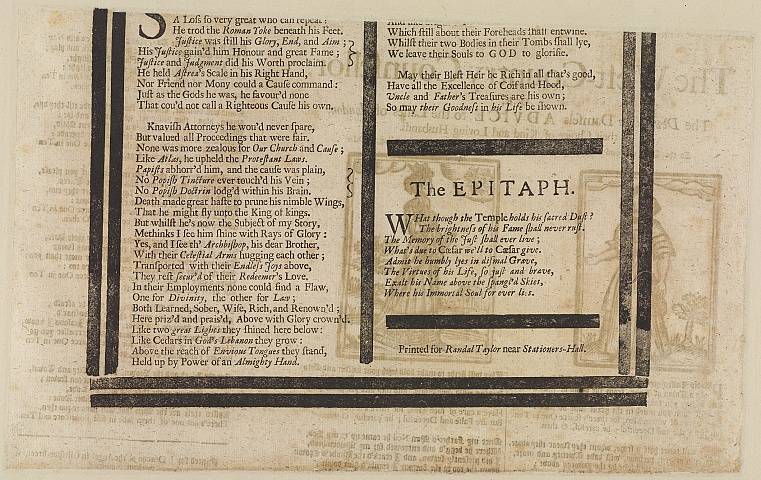 SA Loss so very great who can repeat!
He trod the Roman Yoke beneath his Feet.
Justice was still his Glory, End, and Aim;
His Justice gain'd him Honour and great Fame;
Justice and Judgment did his Worth proclaim.
He held Astrea's Scale in his Right Hand,
Nor Friend nor Mony could a Cause command:
Just as the Gods he was, he favour'd none
That cou'd not call a Righteous Cause his own.
Knavish Attorneys he won'd never spare,
But valued all Proceedings that were fair.
None was more zealous for Our Church and Cause;
Like Atlas, he upheld the Protestant Laws.
Papists abhorr'd him, and the cause was plain,
No Popish Tincture ever touch'd his Vein;
No Popish Doctrin lodg'd within his Brain.
Death made great haste to prune his nimble Wings,
That he might fly unto the King of kings.
But whilst he's now the Subject of my Story,
Methinks I see him shine with Rays of Glory:
Yes, and I see th' Archbishop, his dear Brother,
With their Celestial Arms hugging each other;
Transported with their Endless Joys above,
They rest secur'd of their Redeemer's Love.
In their Employments none could find a Flaw,
One for Divinity, the other for Law;
Both Learned, Sober, Wise, Rich, and Renown'd;
Here priz'd and prais'd, Above with Glory crown'd.
Like two great Lights they shined here below:
Like Cedars in God's Lebanon they grow:
Above the reach of Envious Tongues they stand,
Held up by Power of an Almighty Hand.
Which still about their Foreheads shall entwine.
Whilst their two Bodies in their Tombs shall lye,
We leave their Souls to GOD to glorifie.
May their Blest Heir be Rich in all that's good,
Have all the Excellence of Coif and Hood,
Uncle and Father's Treasures are his own;
So may their Goodness in his Life be shown.
The EPITAPH.
WHat though the Temple holds his sacred Dust?
The brightness of his Fame shall never rust.
The Memory of the Just shall ever live;
What's due to Cæsar we'll to Cæsar give.
Admit he humbly lyes in dismal Grave,
The Virtues of his Life, so just and brave,
Exalt his Name above the spangl'd Skies,
Where his Immortal Soul for ever lies.
Printed for Randal Taylor near Stationers-Hall.